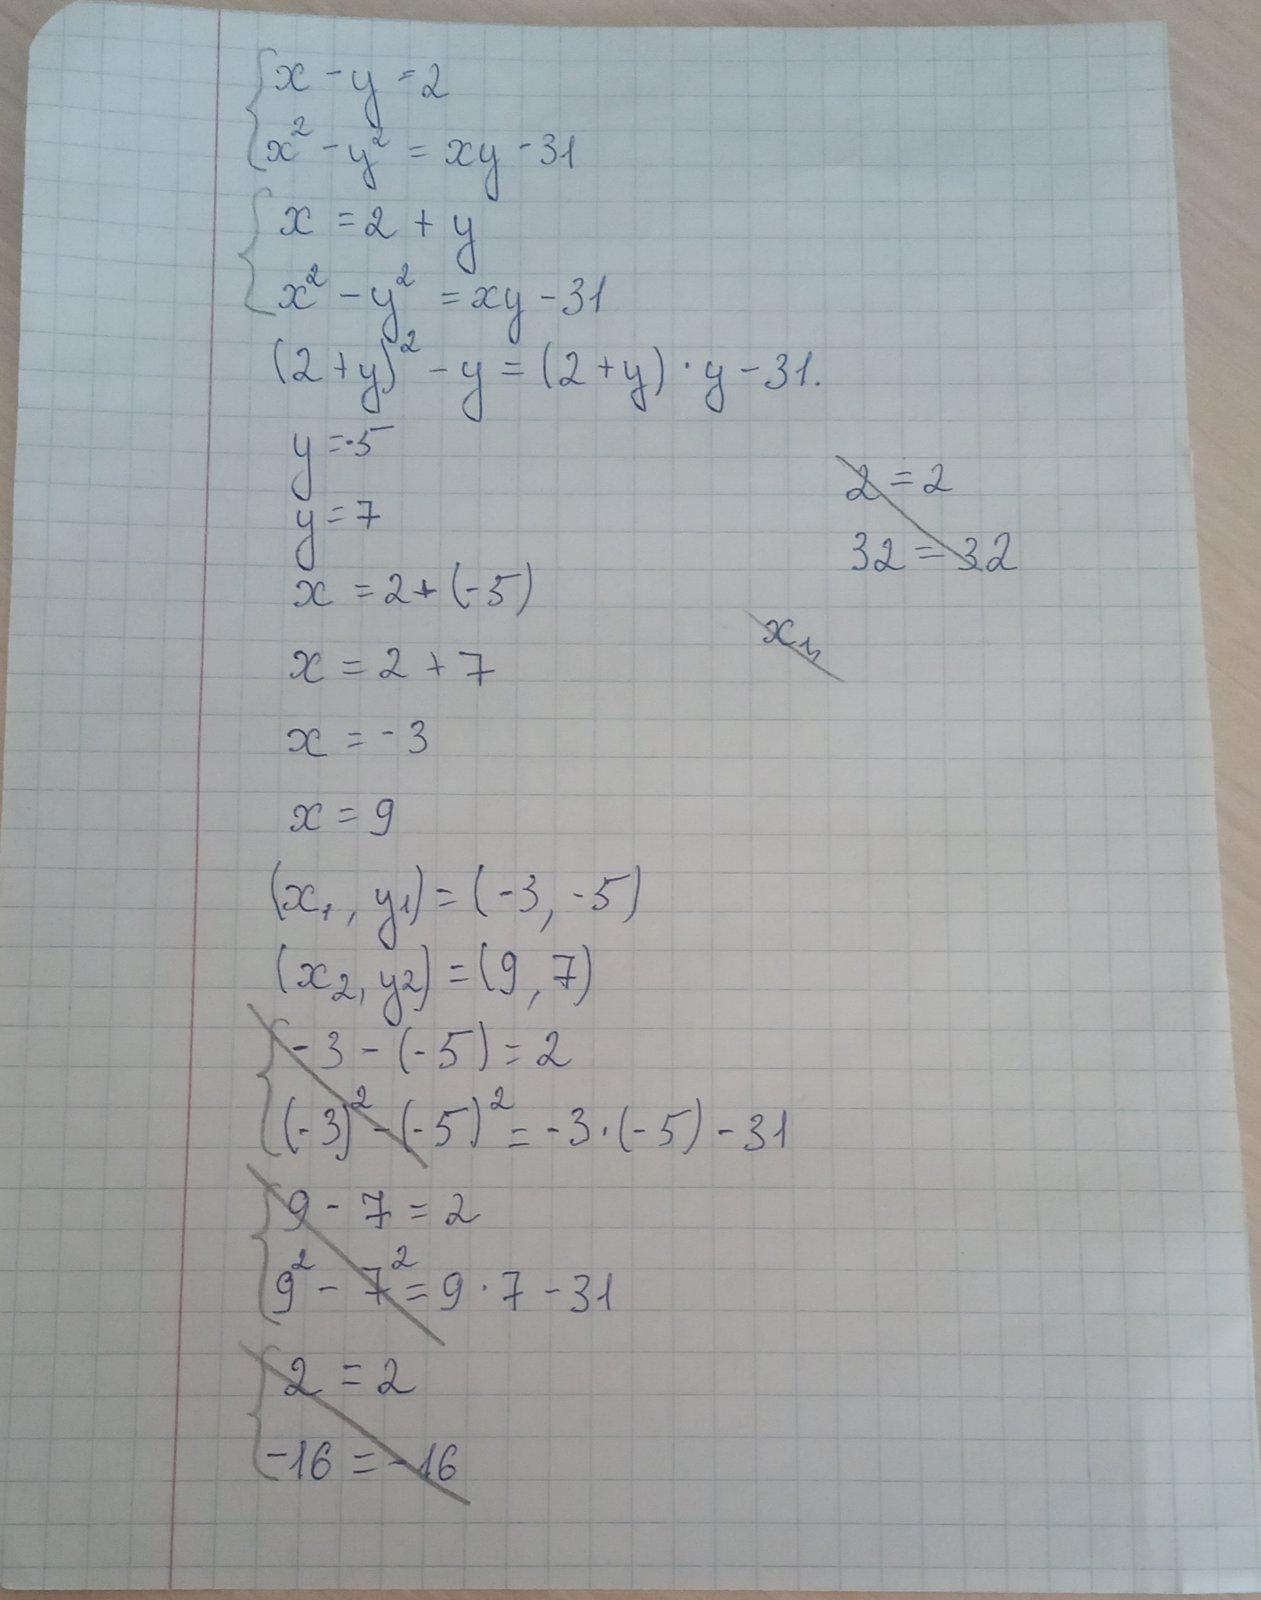 x - y = 2
x² - y² = xy - 31
x = 2 + y
x² - y² = xy - 31
(2 + y)² - y = (2 + y) · y - 31.
y = -5
y = 7
x = 2 + (-5)
x = 2 + 7
x = -3
x = 9
(x₁, y₁) = (-3, -5)
(x₂, y₂) = (9, 7)
-3 - (-5) = 2
(-3)² - (-5)² = -3 · (-5) - 31
9 - 7 = 2
9² - 7² = 9 · 7 - 31
2 = 2
-16 = -16
2 = 2
32 = 32